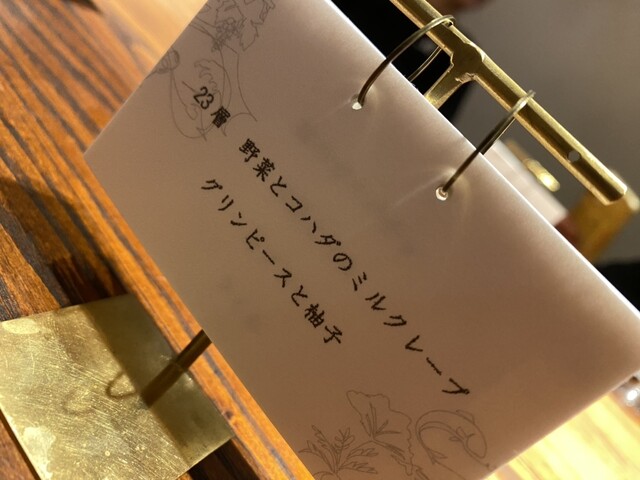 23層 野菜とコハダのミルクレープ
グリンピースと柚子